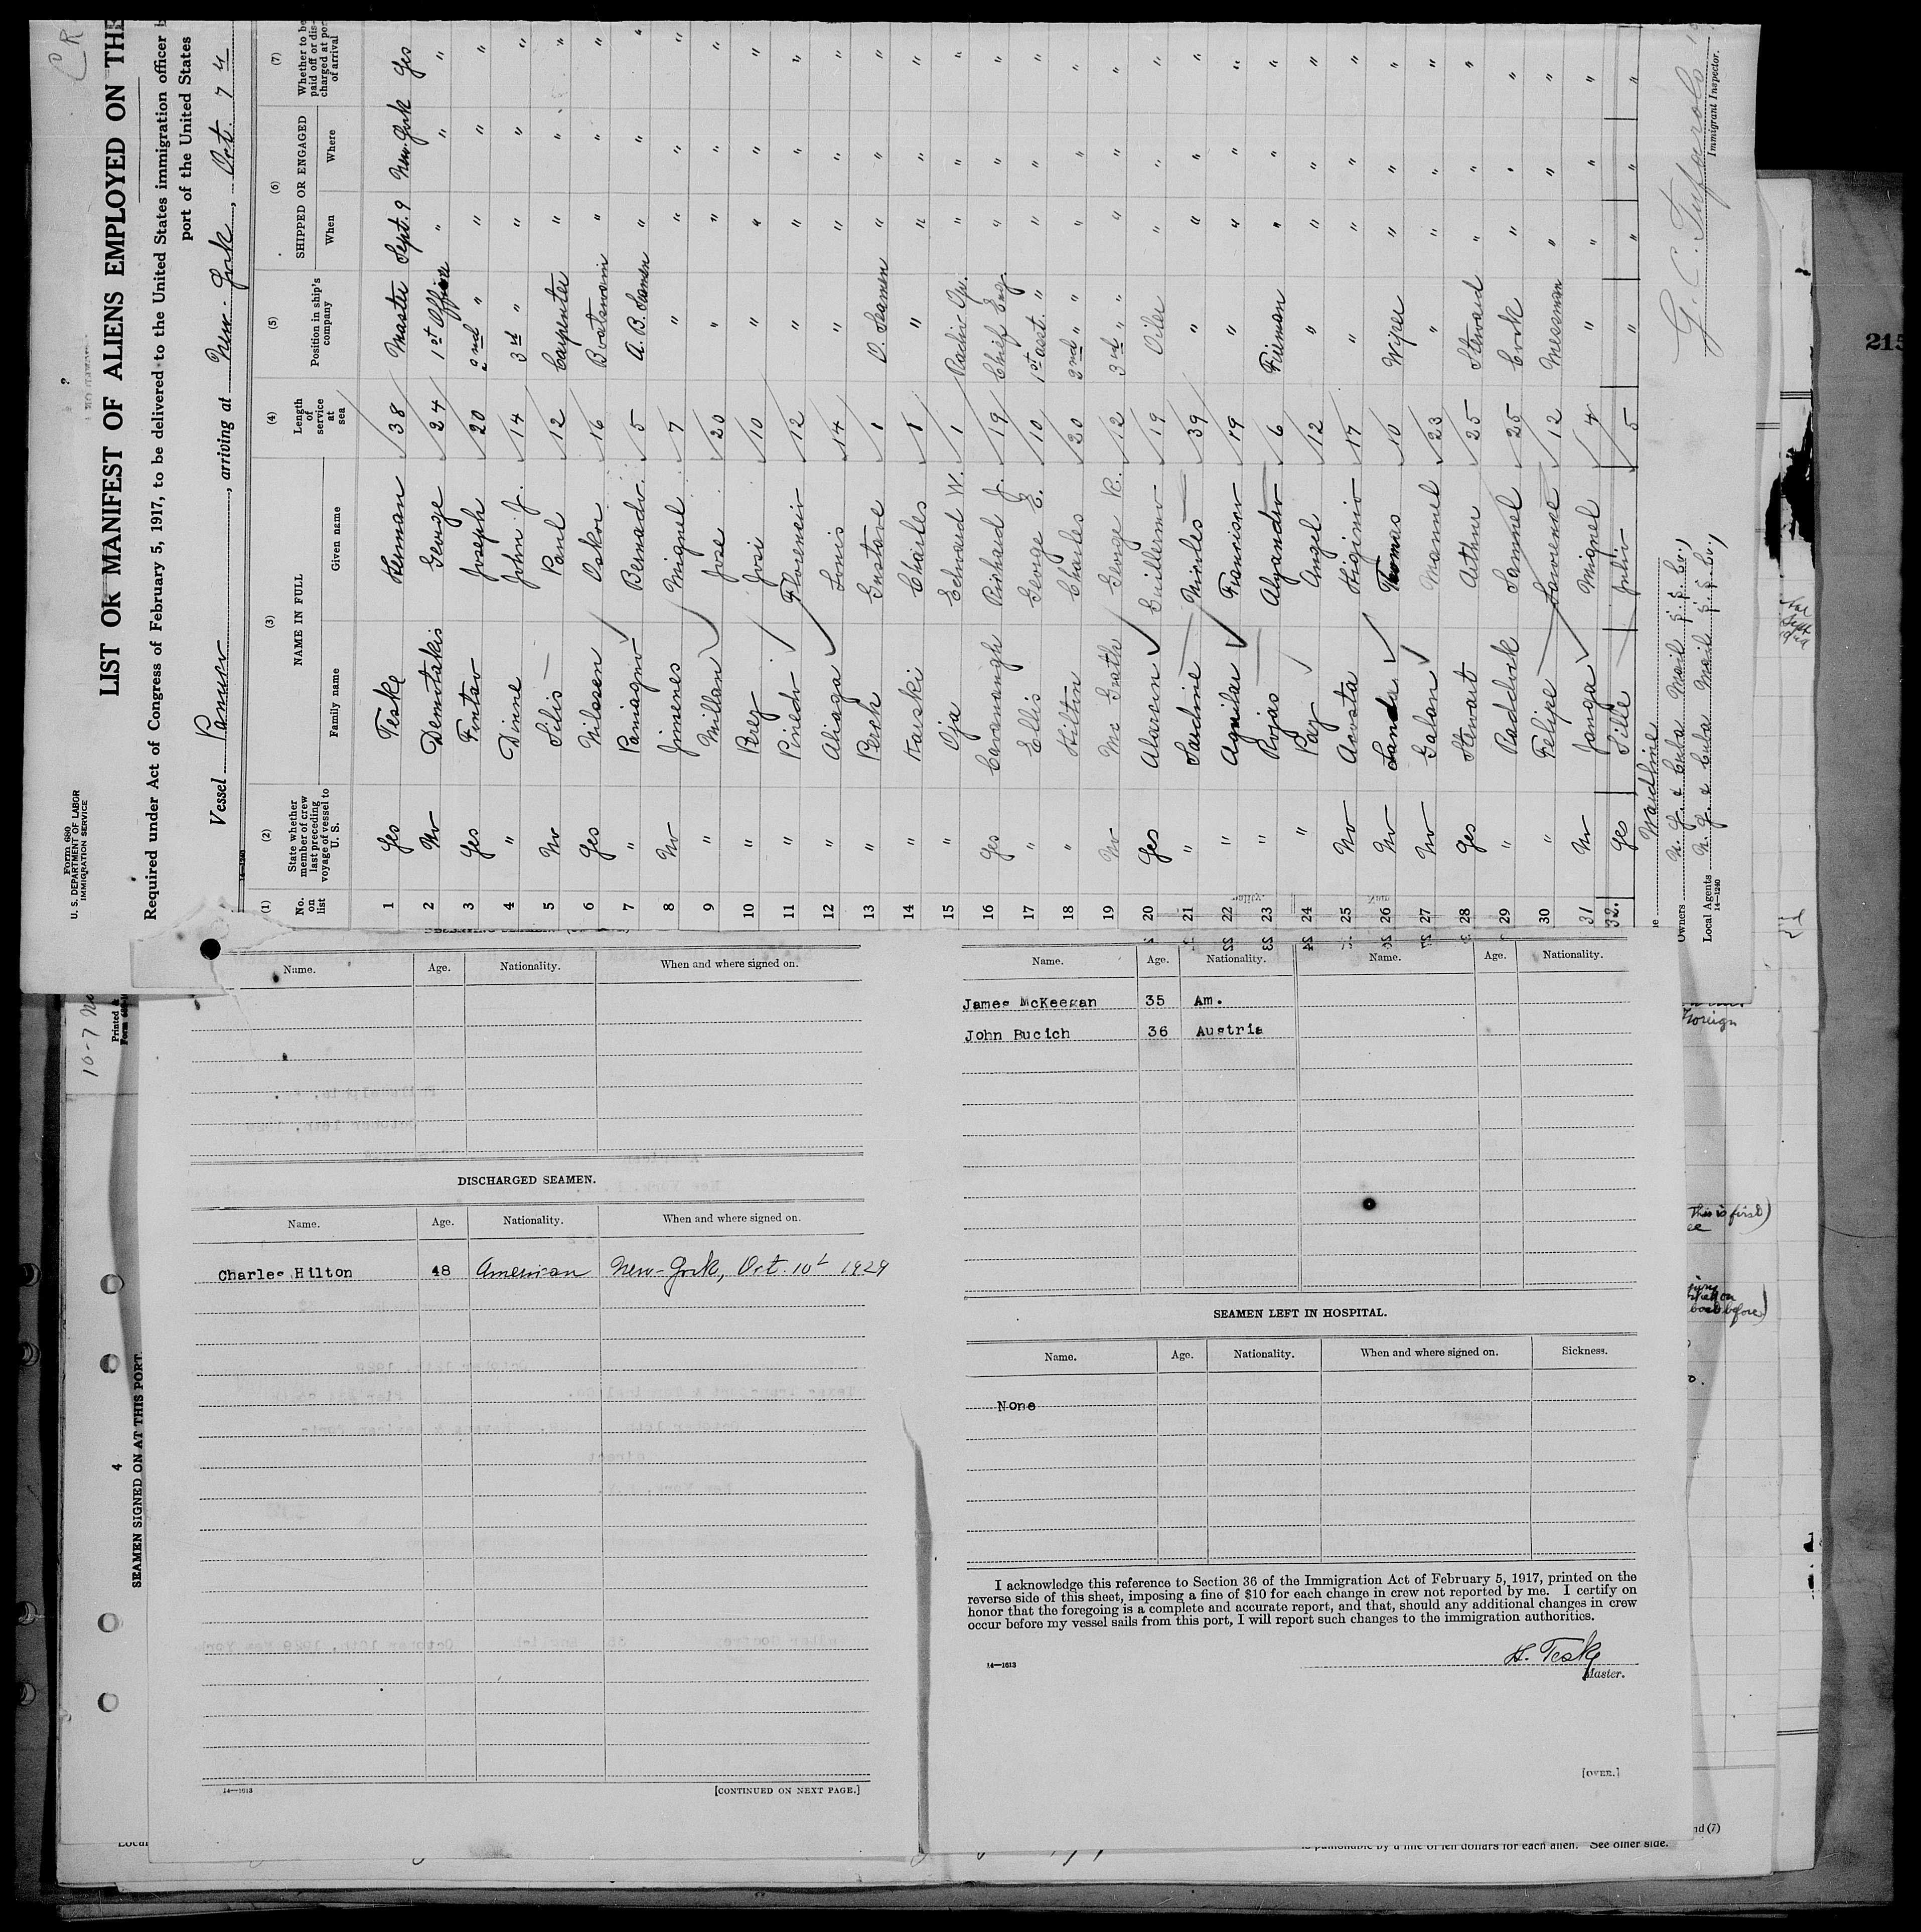 C R
Form 680
U. S. DEPARTMENT OF LABOR
IMMIGRATION SERVICE
LIST OR MANIFEST OF ALIENS EMPLOYED ON THE
Required under Act of Congress of February 5, 1917, to be delivered to the United States immigration officer
port of the United States
Vessel Panuco, arriving at New-York, Oct. 7
(1) (2) (3) (4) (5) (6) (7)
No. on list State whether member of crew last preceding voyage of vessel to U. S. NAME IN FULL Family name Given name Length of service at sea Position in ship's company SHIPPED OR ENGAGED When Where Whether to be paid off or discharged at port of arrival
1 Yes Teske Herman 38 Master Sept. 9 New-York Yes
2 No Demotakis George 24 1st Officer " " "
3 Yes Fintar Joseph 20 2nd " " " "
4 " Dinne John J. 14 3rd " " " "
5 No Silis Paul 12 Carpenter " " "
6 Yes Nilssen Oskar 16 Boatswain " " "
7 " Paniagua Bernardo 5 A. B. Seamen " " "
8 No Jimenes Miguel 7 " " " "
9 " Millan Jose 20 " " " "
10 " Perez Josi 10 " " " "
11 " Pinedo Florencio 12 " " " "
12 " Aliaga Louis 14 " " " "
13 " Perch Gustave 1 O. Seamen " " "
14 " Karski Charles 1 " " " "
15 " Oja Edward W. 1 Radio Op. " " "
16 Yes Cavanaugh Richard J. 19 Chief Eng. " " "
17 " Ellis George E. 10 1st asst. " " " "
18 " Hilton Charles 20 2nd " " " "
19 No Mc Grath George R. 12 3rd " " " "
20 Yes Alarcon Guillermo 19 Oiler " " "
21 " Sardine Nicoles 39 " " " "
22 " Aguilar Francisco 19 " " " "
23 " Rojas Alejandro 6 Fireman " " "
24 " Paz Angel 12 " " " "
25 No Acosta Higinio 17 " " " "
26 No Landa Thomas 10 Wiper " " "
27 No Galan Manuel 23 " " " "
28 Yes Stewart Arthur 25 Steward " " "
29 " Raddock Samuel 25 Cook " " "
30 " Felipe Lawrence 12 Messman " " "
31 No Janga Miguel 4 " " " "
32. Yes Lille Julio 5 " " " "
Wardline
Owners N. Y. & Cuba Mail S. S. Co.,
Local Agents N. Y. & Cuba Mail S. S. Co.,
14—1240
Immigrant Inspector.
215
10-7
Printed
Name. Age. Nationality. When and where signed on.
DISCHARGED SEAMEN.
Name. Age. Nationality. When and where signed on.
Charles Hilton 48 American New-York, Oct. 10th 1929
14—1613 [CONTINUED ON NEXT PAGE.]
4
SEAMEN SIGNED ON AT THIS PORT.
Name. Age. Nationality. Name. Age. Nationality.
James McKeegan 35 Am.
John Bucich 36 Austria
SEAMEN LEFT IN HOSPITAL.
Name. Age. Nationality. When and where signed on. Sickness.
None
I acknowledge this reference to Section 36 of the Immigration Act of February 5, 1917, printed on the
reverse side of this sheet, imposing a fine of $10 for each change in crew not reported by me. I certify on
honor that the foregoing is a complete and accurate report, and that, should any additional changes in crew
occur before my vessel sails from this port, I will report such changes to the immigration authorities.
H. Teske
14—1613 Master.
[OVER.]
Foreign
This is first)
before)
nd (7)
is punishable by a fine of ten dollars for each alien. See other side.